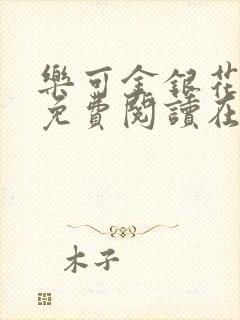 樂可金銀花
免費閱讀在
木子